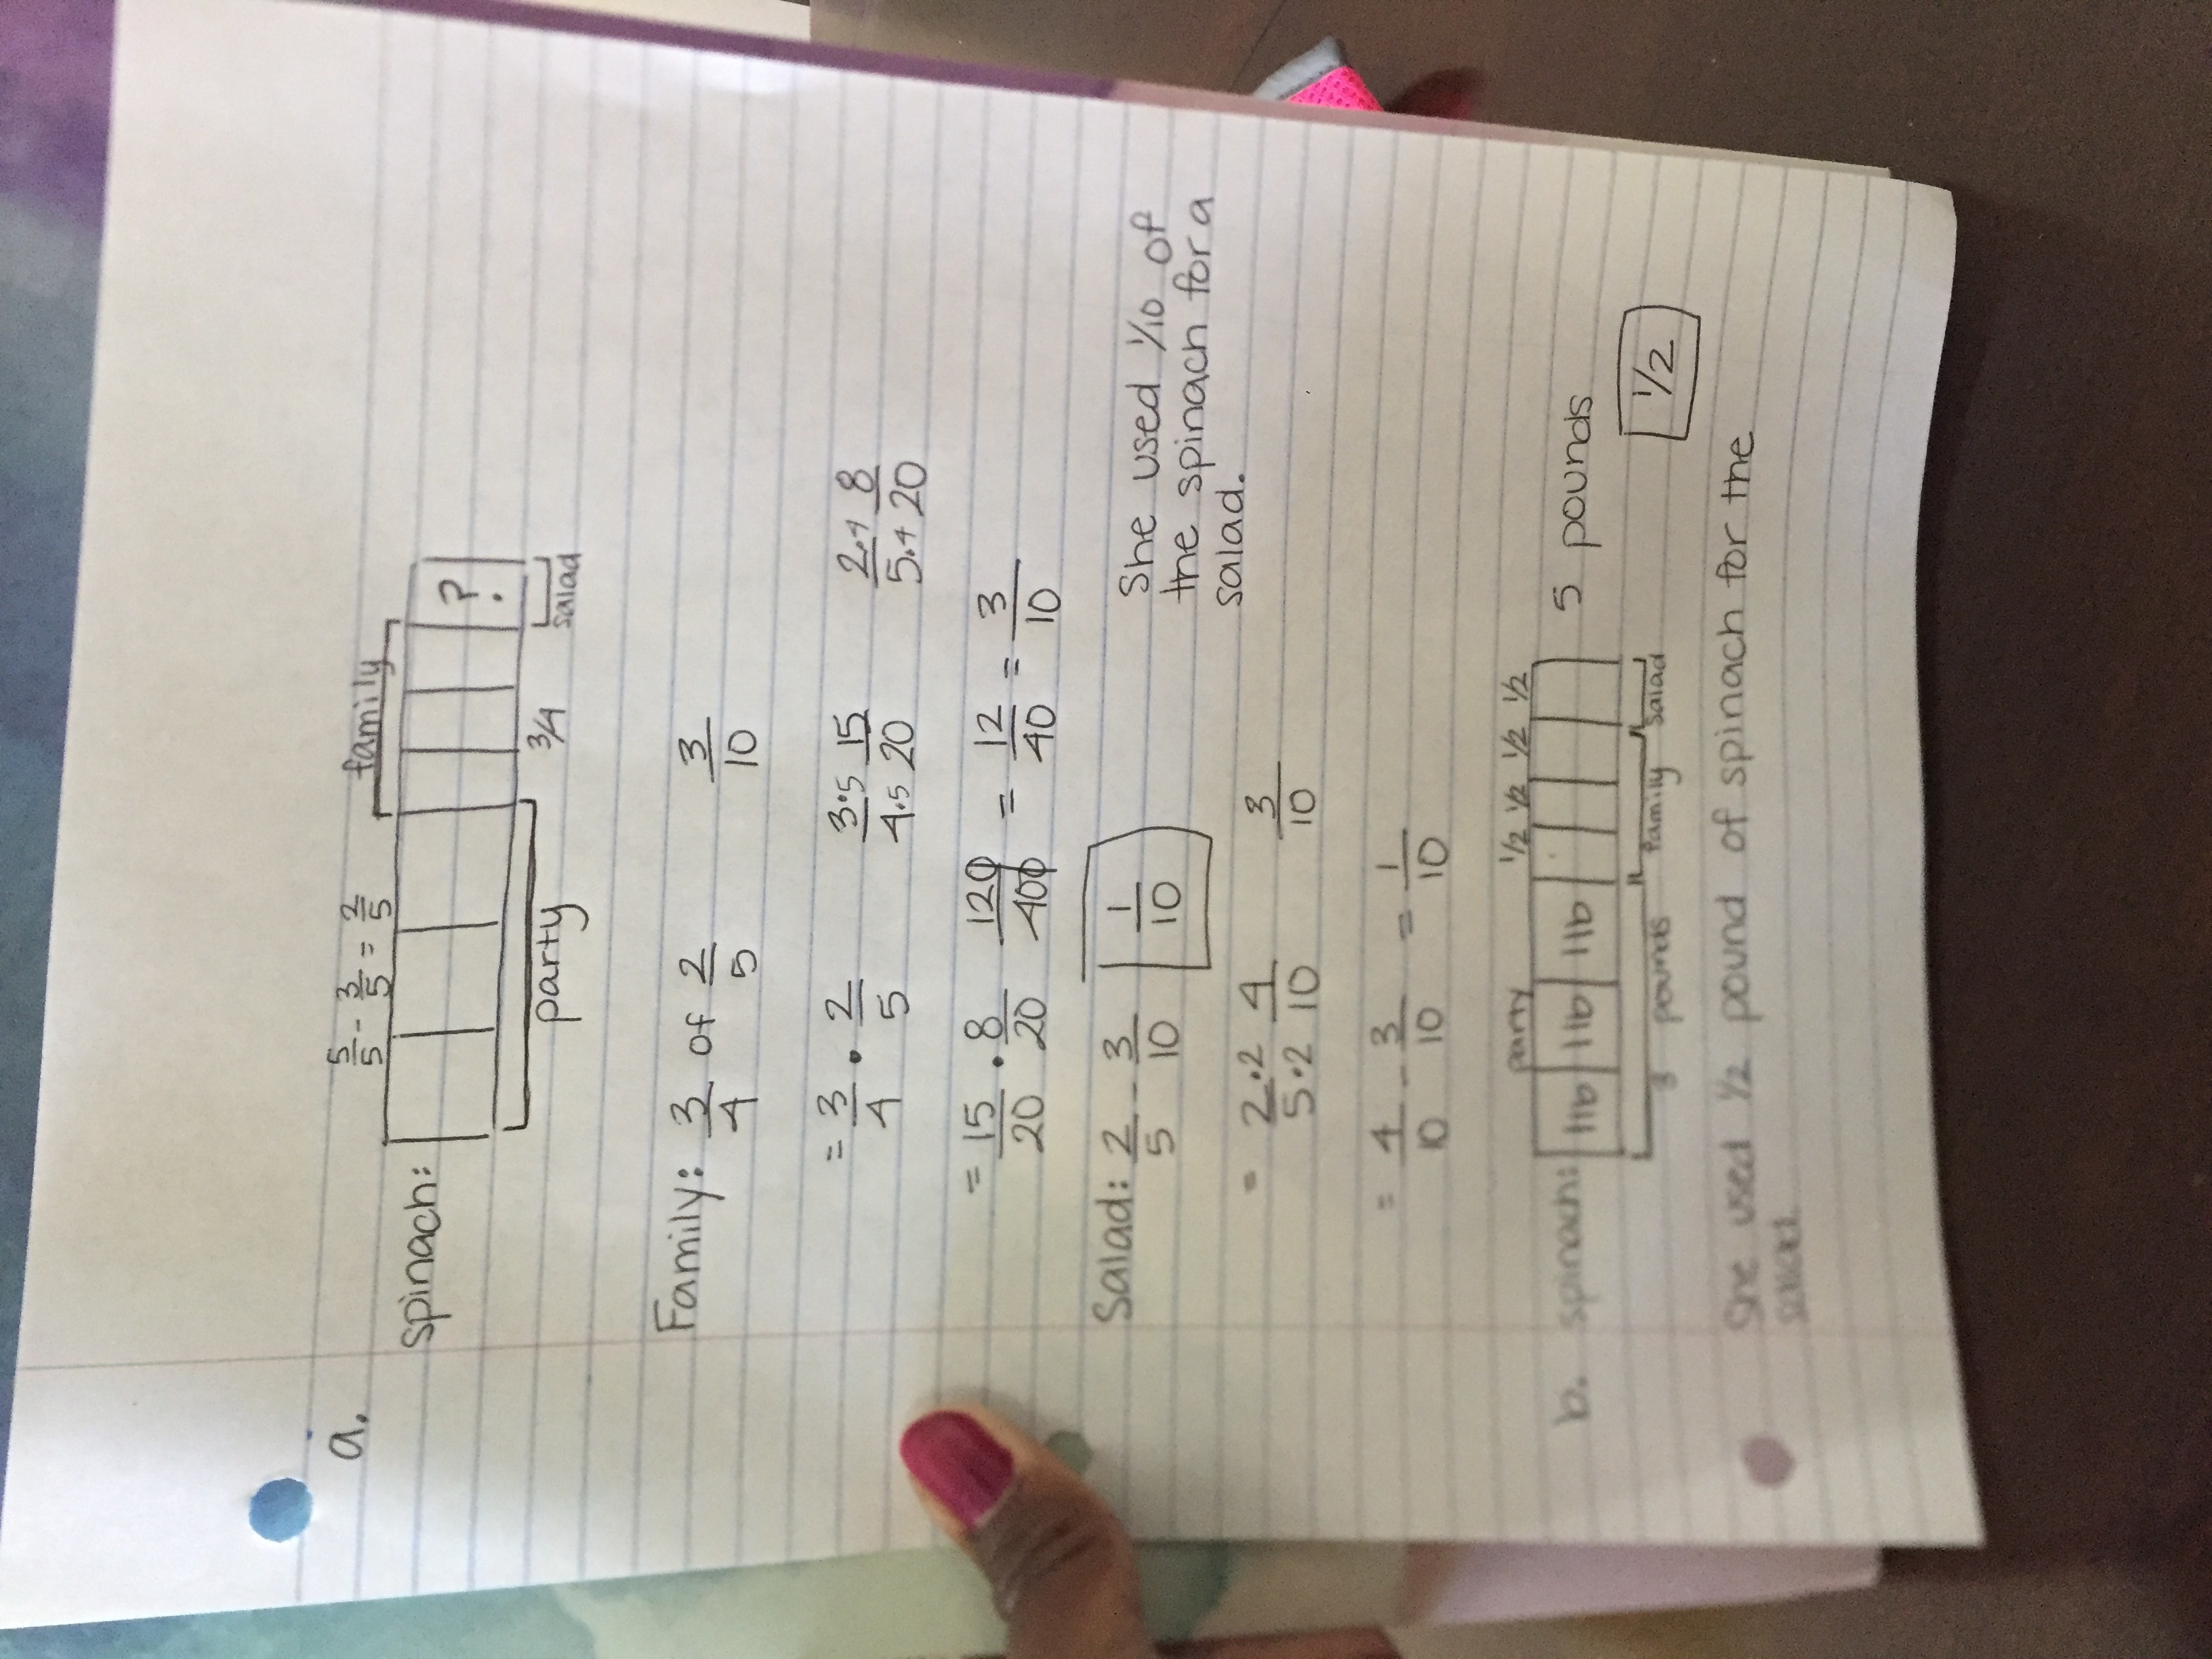 a.
5/5 - 3/5 = 2/5
family
spinach:
?
party
3/4
salad
Family: 3/4 of 2/5 3/10
= 3/4 • 2/5 3•5/4•5 15/20 2•4/5•4 8/20
= 15/20 • 8/20 120/400 = 12/40 = 3/10
Salad: 2/5 - 3/10 1/10
She used 1/10 of
the spinach for a
salad.
= 2•2/5•2 4/10 3/10
= 4/10 - 3/10 = 1/10
party 1/2 1/2 1/2 1/2
b. spinach: 1lb 1lb 1lb 5 pounds
3 pounds family salad
1/2
She used 1/2 pound of spinach for the
salad.